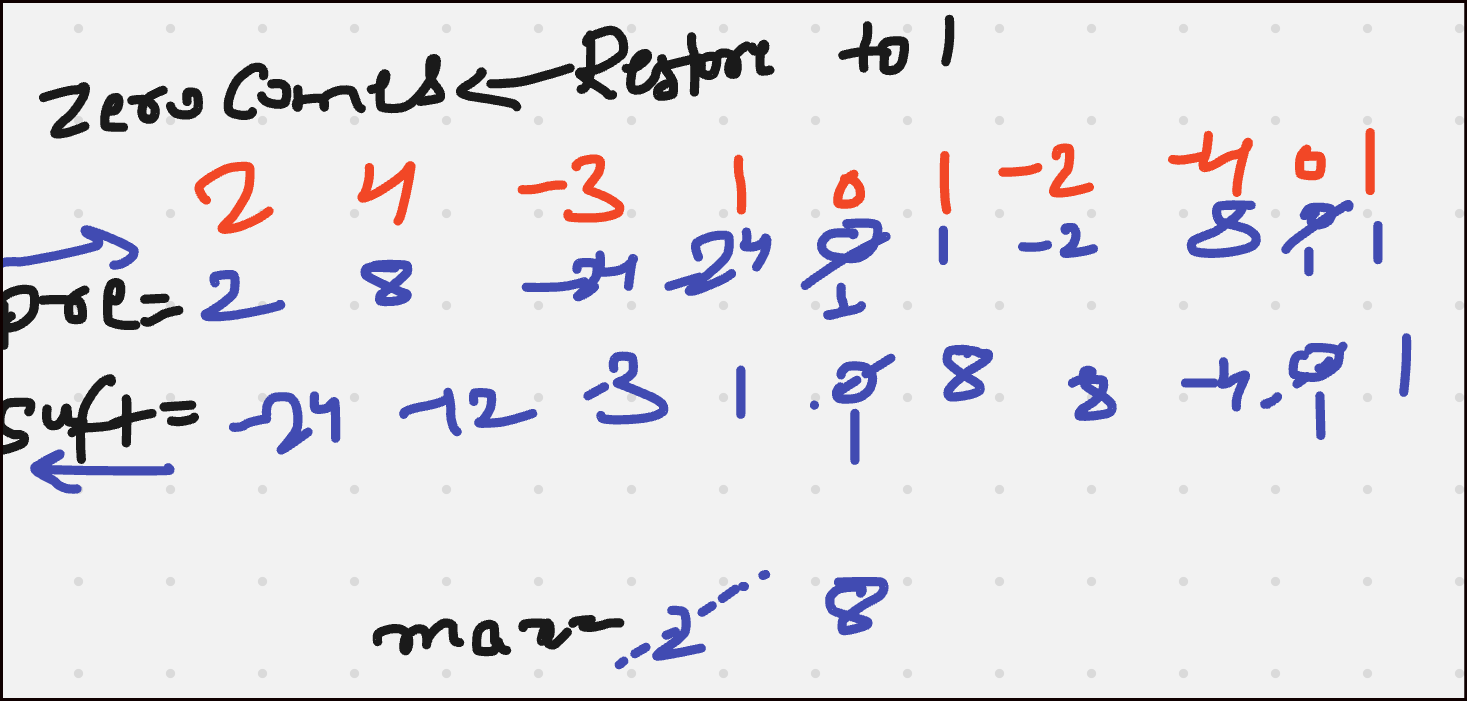 zero comes ← Restore to 1
2 4 -3 1 0 1 -2 -4 0 1
pre= 2 8 -24 -24 0 1 -2 8 0 1
1 1
suff= -24 -12 -3 1 0 8 8 -4 0 1
1 1
max= 2 8